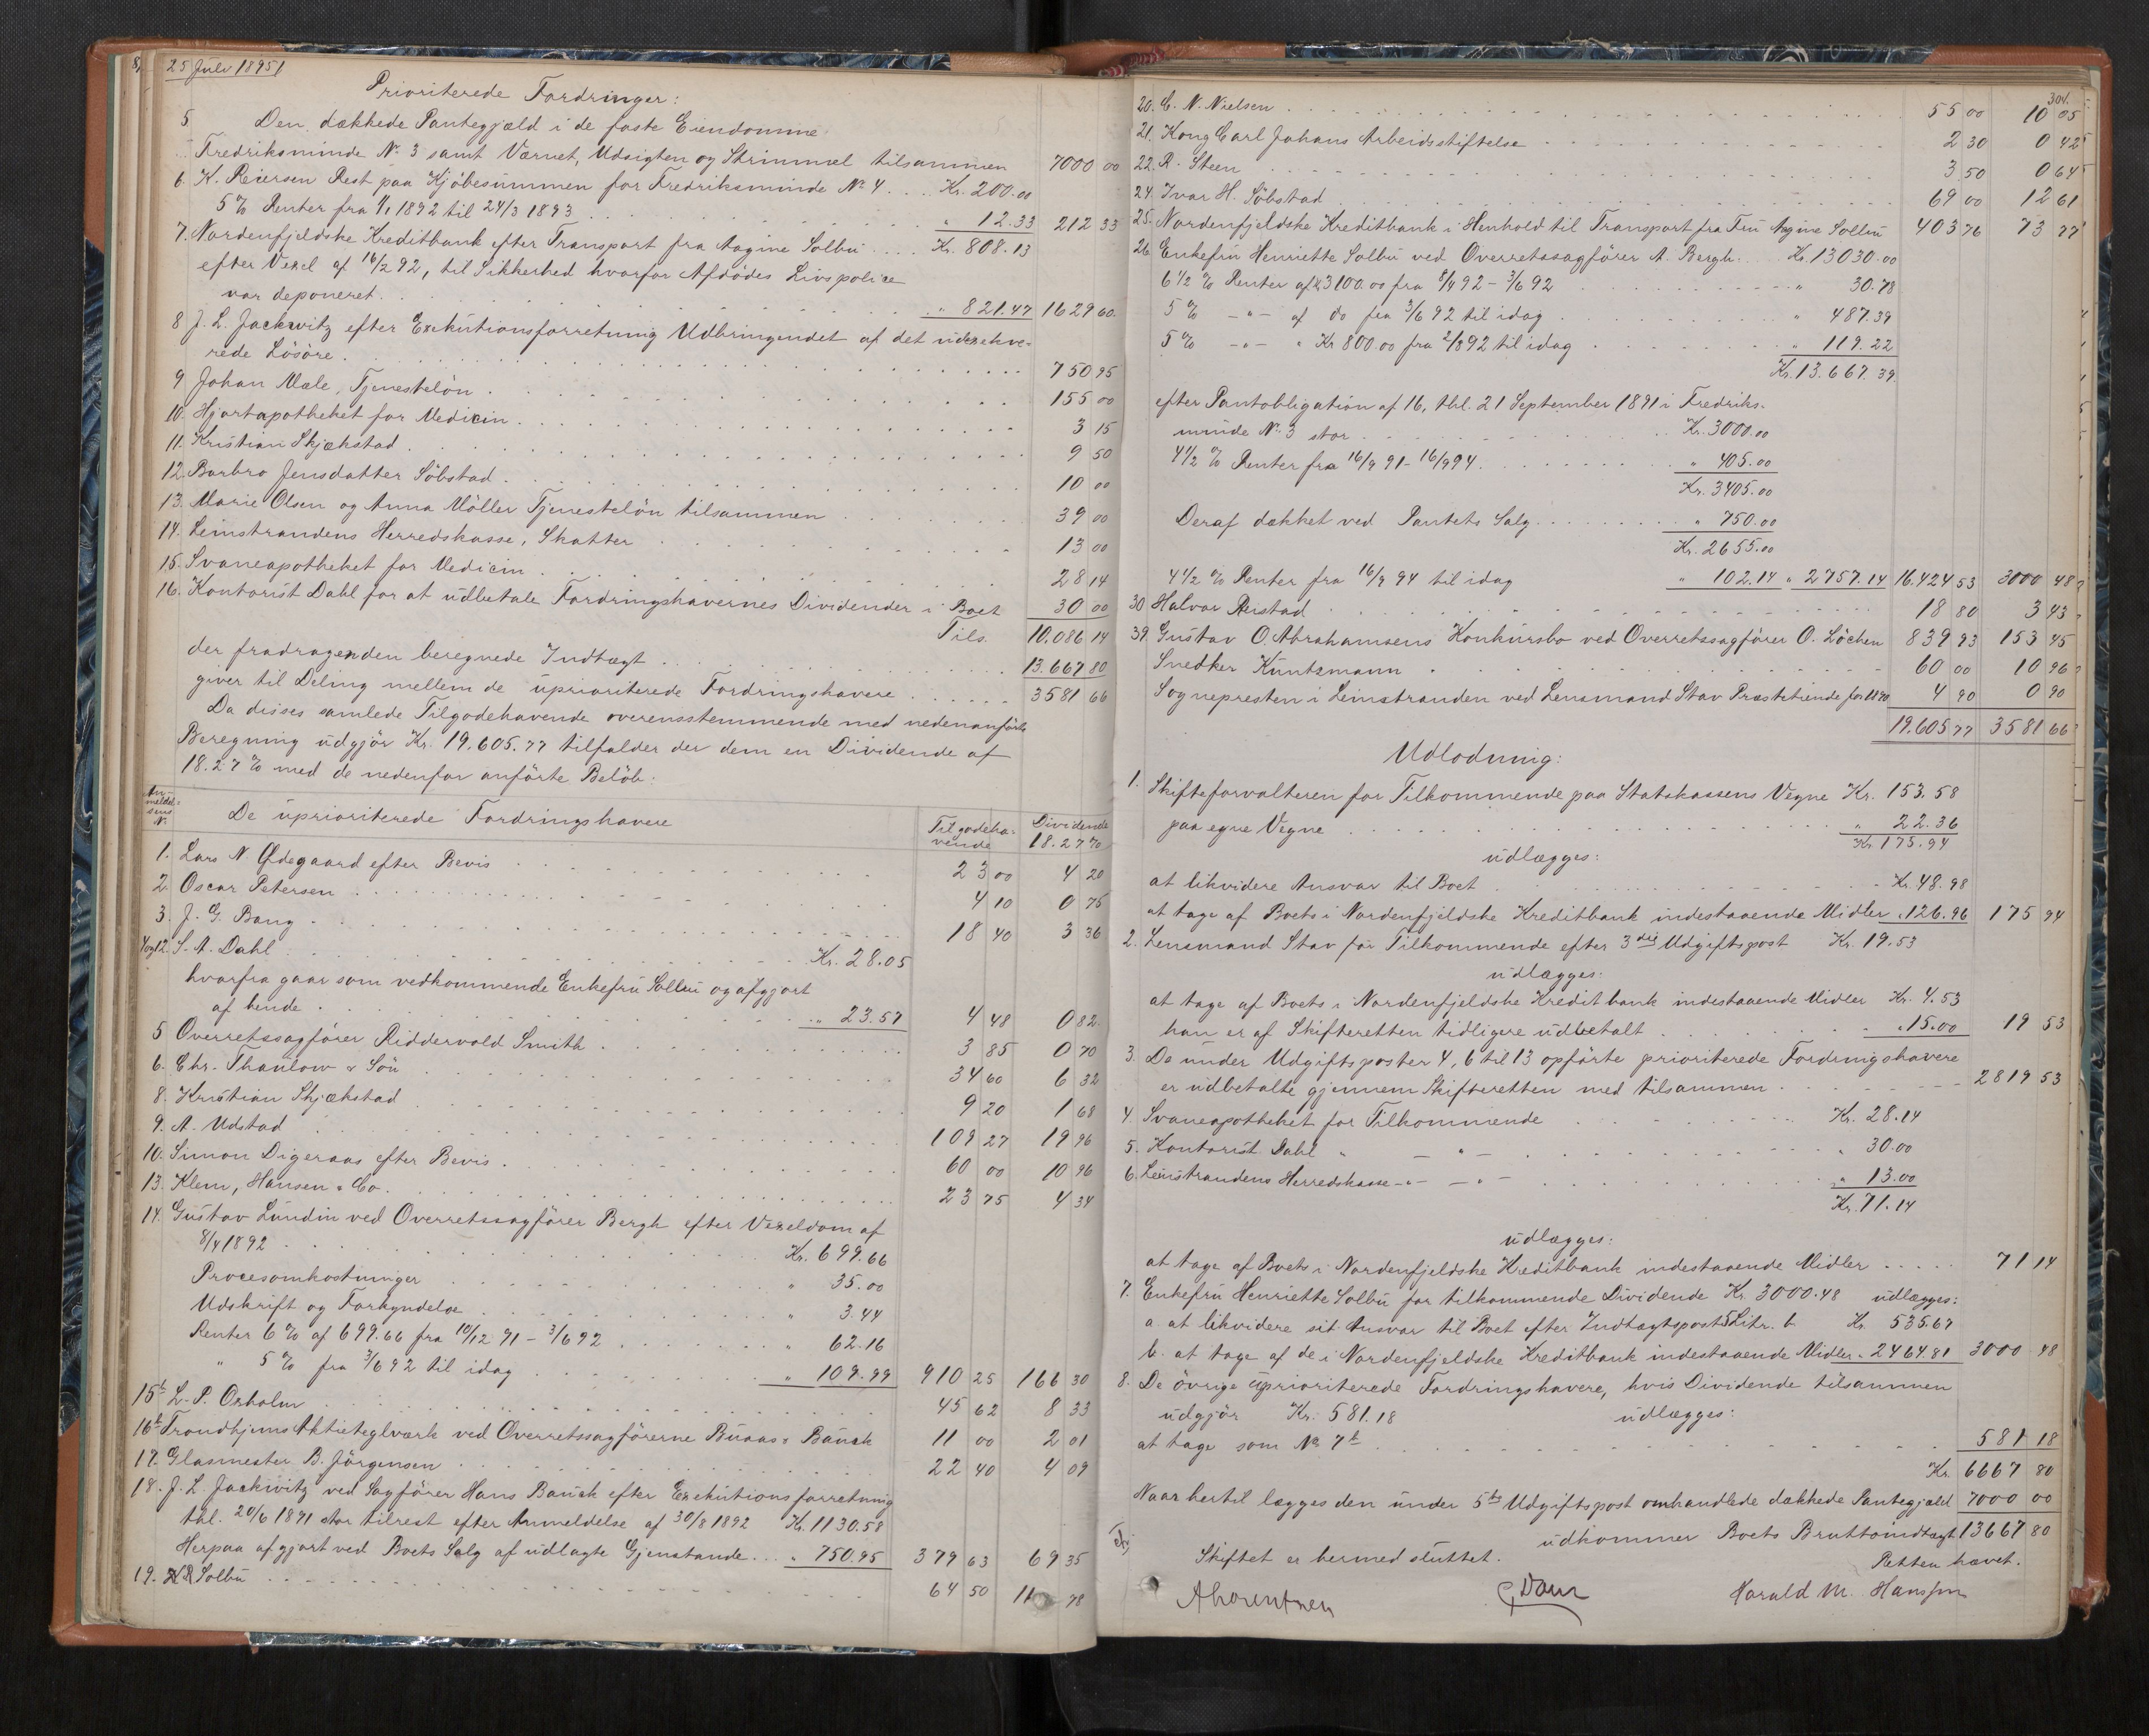 25 Juli 1895
Prioriterede Fordringer:
5. Den dækkede Pantegjæld i de faste Eiendomme
Fredriksminde No 3 samt Værnet, Udsigten og Strimmel tilsammen 7000 00
6. K. Reiersen Rest paa Kjöbesummen for Fredriksminde No 4 . . Kr. 200.00
5 % Renter fra 1/1 1892 til 24/3 1893 . . . „ 12.33 212 33
7. Nordenfjeldske Kreditbank efter Transport fra Aagine Solbu . . . Kr. 808.13
efter Vexel af 16/2 92, til Sikkerhed hvorfor Afdödes Livspolice
var deponeret . . . „ 821.47 1629 60
8 J. L. Jackwitz efter Exekutionsforretning Udbringendet af det udexekve-
rede Lösöre . . . 750 95
9 Johan Male, Tjenestelön . . . 155 00
10. Hjortapotheket for Medicin . . . 3 15
11. Kristian Skjækstad . . . 9 50
12. Barbro Jensdatter Söbstad . . . 10 00
13. Marie Olsen og Anna Möller Tjenestelön tilsammen . . . 39 00
14. Leinstrandens Herredskasse, Skatter . . . 13 00
15. Svaneapotheket for Medicin . . . 28 14
16. Kontorist Dahl for at udbetale Fordringshavernes Dividender i Boet 30 00
Tils. 10.086 14
der fradragenden beregnede Indtægt . . . 13.667 80
giver til Deling mellem de uprioriterede Fordringshavere . . . 3581 66
Da disses samlede Tilgodehavende overensstemmende med nedenanförte
Beregning udgjör Kr. 19.605.77 tilfalder der dem en Dividende af
18.27 % med de nedenfor anförte Belöb:
An-
meldel-
sens
No. De uprioriterede Fordringshavere Tilgodeha-
vende Dividende
18.27 %
1. Lars N. Ødegaard efter Bevis . . . 23 00 4 20
2. Oscar Petersen . . . 4 10 0 75
3. J. G. Bang . . . 18 40 3 36
4 og 12. S. A. Dahl . . . Kr. 28.05
hvorfra gaar som vedkommende Enkefru Solbu og afgjort
af hende . . . „ 23.57 4 48 0 82
5 Overretssagförer Riddervold Smith . . . 3 85 0 70
6. Chr. Thaulow & Sön . . . 34 60 6 32
8. Kristian Skjækstad . . . 9 20 1 68
9. A. Udstad . . . 109 27 19 96
10. Simon Digeraas efter Bevis . . . 60 00 10 96
13. Klem, Hansen & Co. . . . 23 75 4 34
14. Gustav Lundin ved Overretssagförer Bergh efter Vexeldom af
8/4 1892 . . . Kr. 699.66
Procesomkostninger . . . „ 35.00
Udskrift og Forkyndelse . . . „ 3.44
Renter 6 % af 699.66 fra 10/12 91 – 3/6 92 . . . „ 62.16
„ 5 % fra 3/6 92 til idag . . . „ 109.99 910 25 166 30
15b L. P. Oxholm . . . 45 62 8 33
16b Trondhjems Aktieteglværk ved Overretssagförerne Buaas & Bauck 11 00 2 01
17. Glasmester B. Jörgensen . . . 22 40 4 09
18. J. L. Jackwitz ved Sagförer Hans Bauck efter Exekutionsforretning
thl. 20/6 1891 stor tilrest efter Anmeldelse af 30/8 1892 Kr. 1130.58
Herpaa afgjort ved Boets Salg af udlagte Gjenstande . . . „ 750.95 379 63 69 35
19. Solbu . . . 64 50 11 78
304.
20. C. N. Nielsen . . . 55 00 10 05
21. Kong Carl Johans Arbeidsstiftelse . . . 2 30 0 42
22. R. Steen . . . 3 50 0 64
24. Ivar H. Söbstad . . . 69 00 12 61
25. Nordenfjeldske Kreditbank i Henhold til Transport fra Fru Aagine Solbu 403 76 73 77
26. Enkefru Henriette Solbu ved Overretssagförer A. Bergh . . . Kr. 13030.00
6 1/2 % Renter af K. 3100.00 fra 8/4 92 – 3/6 92 . . . „ 30.78
5 % -„- af do fra 3/6 92 til idag . . . „ 487.39
5 % -„- „ Kr 800.00 fra 2/8 92 til idag . . . „ 119.22
Kr. 13.667.39.
efter Pantobligation af 16, thl. 21 September 1891 i Fredriks-
minde No. 3 stor . . . Kr. 3000.00
4 1/2 % Renter fra 16/9 91 – 16/9 94 . . . „ 405.00
Kr. 3405.00
Deraf dækket ved Pantets Salg . . . „ 750.00
Kr. 2655.00
4 1/2 % Renter fra 16/9 94 til idag „ 102.14 „ 2757.14 16.424 53 3000 48
30 Halvor Rustad . . . 18 80 3 43
39. Gustav O. Abrahamsens Konkursbo ved Overretssagförer O. Löchen 839 93 153 45
Snedker Kuntzmann . . . 60 00 10 96
Sognepresten i Leinstranden ved Lensmand Stav Præstetiende for 1890 4 90 0 90
19.605 77 3581 66
Udlodning:
1. Skifteforvalteren for Tilkommende paa Statskassens Vegne Kr. 153.58
paa egne Vegne . . . „ 22.36
Kr. 175.94
udlægges:
at likvidere Ansvar til Boet . . . Kr. 48.98
at tage af Boets i Nordenfjeldske Kreditbank indestaaende Midler „ 126.96 175 94
2. Lensmand Stav for Tilkommende efter 3die Udgiftspost Kr. 19.53
udlægges:
at tage af Boets i Nordenfjeldske Kreditbank indestaaende Midler Kr. 4.53
han er af Skifteretten tidligere udbetalt . . . „ 15.00 19 53
3. De under Udgiftsposter 4, 6 til 13 opförte prioriterede Fordringshavere
er udbetalte gjennem Skifteretten med tilsammen . . . 2819 53
4. Svaneapotheket for Tilkommende . . . Kr. 28.14
5. Kontorist Dahl „ – „ – . . . „ 30.00
6. Leinstrandens Herredskasse -„- -„- . . . „ 13.00
Kr. 71.14
udlægges:
at tage af Boets i Nordenfjeldske Kreditbank indestaaende Midler . . . 71 14
7. Enkefru Henriette Solbu for tilkommende Dividende Kr. 3000.48 udlægges:
a. at likvidere sit Ansvar til Boet efter Indtægtspost 5 Litr. b Kr. 535.67
b. at tage af de i Nordenfjeldske Kreditbank indestaaende Midler „ 2464.81 3000 48
8. De övrige uprioriterede Fordringshavere, hvis Dividende tilsammen
udgjör Kr. 581.18 udlægges:
at tage som No 7b . . . 581 18
Kr. 6667 80
Naar hertil lægges den under 5te Udgiftspost omhandlede dækkede Pantegjæld 7000 00
udkommer Boets Bruttoindtægt 13667 80
Skiftet er hermed sluttet.
Retten hævet.
Harald M. Hansen